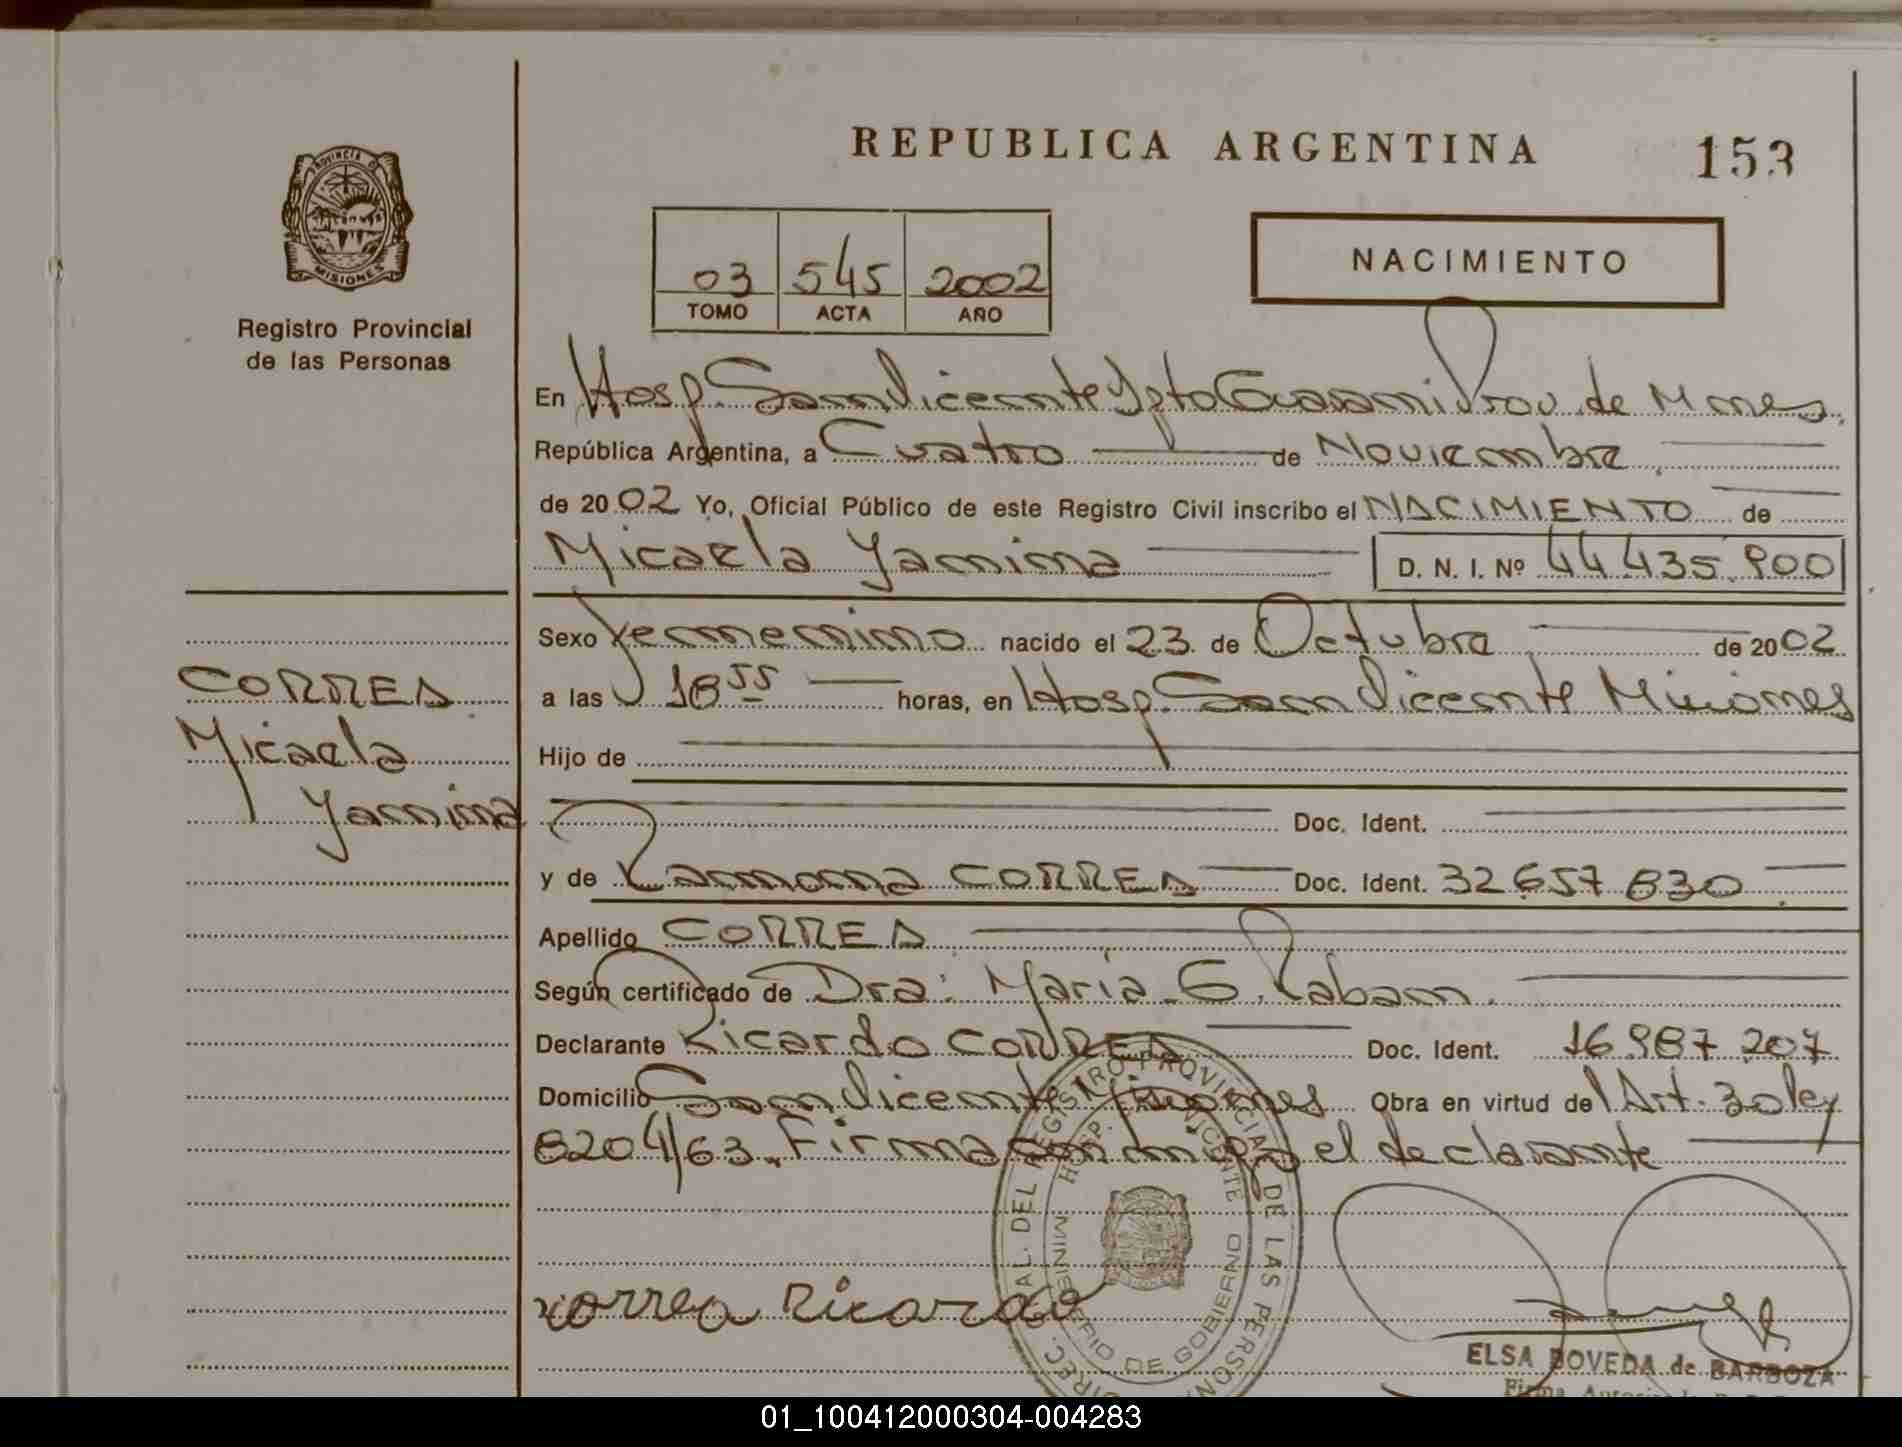 REPUBLICA ARGENTINA
153
PROVINCIA DE
MISIONES
Registro Provincial
de las Personas
03 545 2002
TOMO ACTA AÑO
NACIMIENTO
En Hosp. San Vicente Dpto Guarani Prov. de Mnes.
República Argentina, a Cuatro de Noviembre
de 2002 Yo, Oficial Público de este Registro Civil inscribo el NACIMIENTO de
Micaela Yamina D. N. I. Nº 44.435.900
Sexo femenino nacido el 23 de Octubre de 2002
CORREA
a las 18 55 horas, en Hosp. San Vicente Misiones
Micaela
Hijo de
Yamina
Doc. Ident.
y de Ramona CORREA Doc. Ident. 32.657.830
Apellido CORREA
Según certificado de Dra: María G. Raban
Declarante Ricardo CORREA Doc. Ident. 16.987.207
Domicilio San Vicente Misiones Obra en virtud del Art. 30 ley
8204/63. Firma con migo el declarante
DIREC. GRAL. DEL REGISTRO PROVINCIAL DE LAS PERSONAS
HOSP. VICENTE
MINISTERIO DE GOBIERNO
Correa Ricardo
ELSA BOVEDA de BARBOZA
01_100412000304-004283